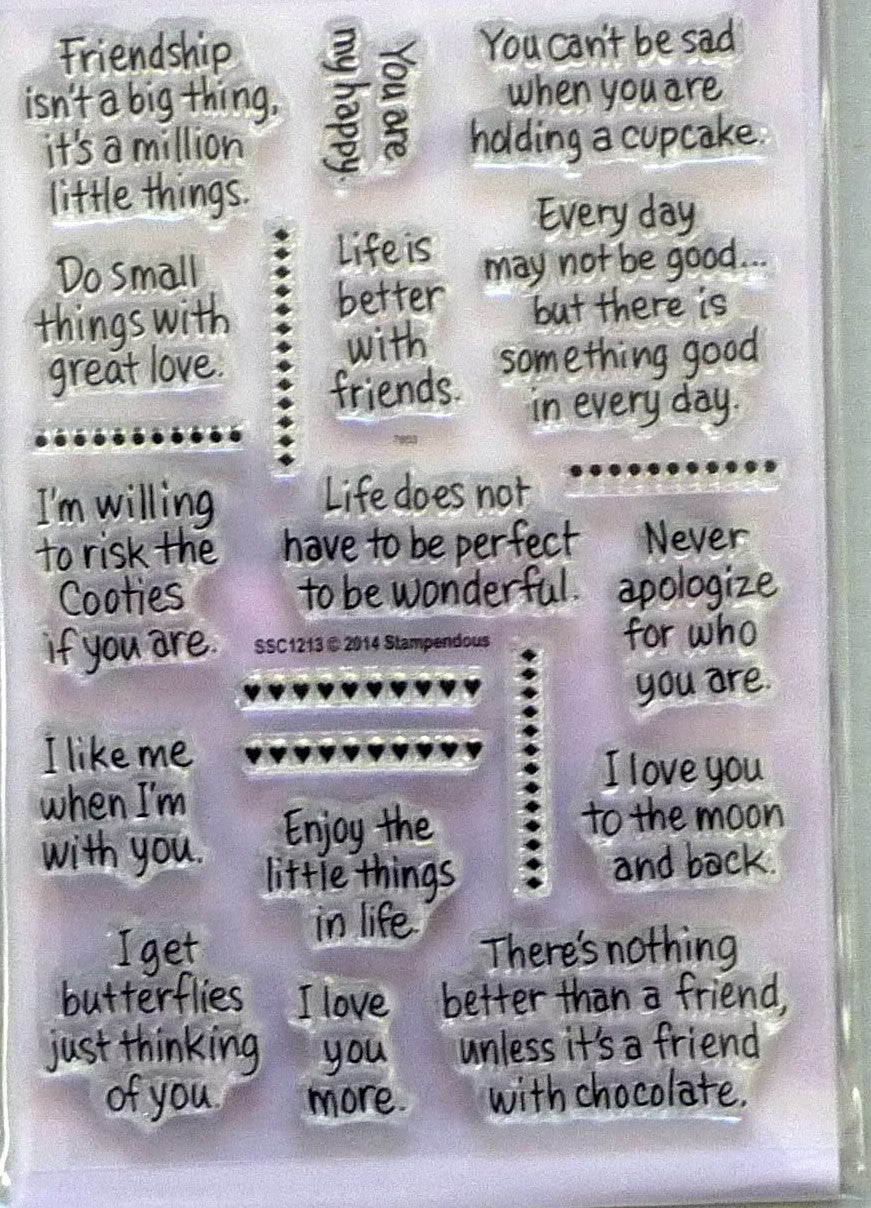 Friendship
isn't a big thing,
it's a million
little things.
You are
my happy.
You can't be sad
when you are
holding a cupcake.
Do small
things with
great love.
Life is
better
with
friends.
Every day
may not be good...
but there is
something good
in every day.
I'm willing
to risk the
Cooties
if you are.
Life does not
have to be perfect
to be wonderful.
Never
apologize
for who
you are.
SSC1213 © 2014 Stampendous
I like me
when I'm
with you.
Enjoy the
little things
in life.
I love you
to the moon
and back.
I get
butterflies
just thinking
of you.
I love
you
more.
There's nothing
better than a friend,
unless it's a friend
with chocolate.